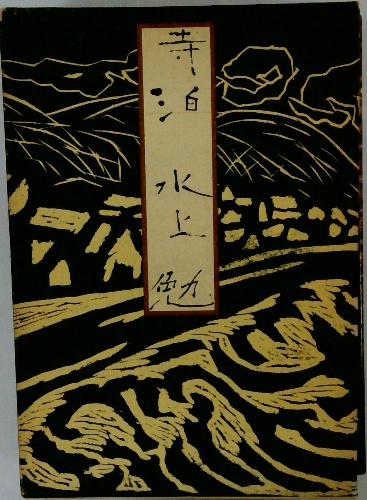 寺泊 水上勉